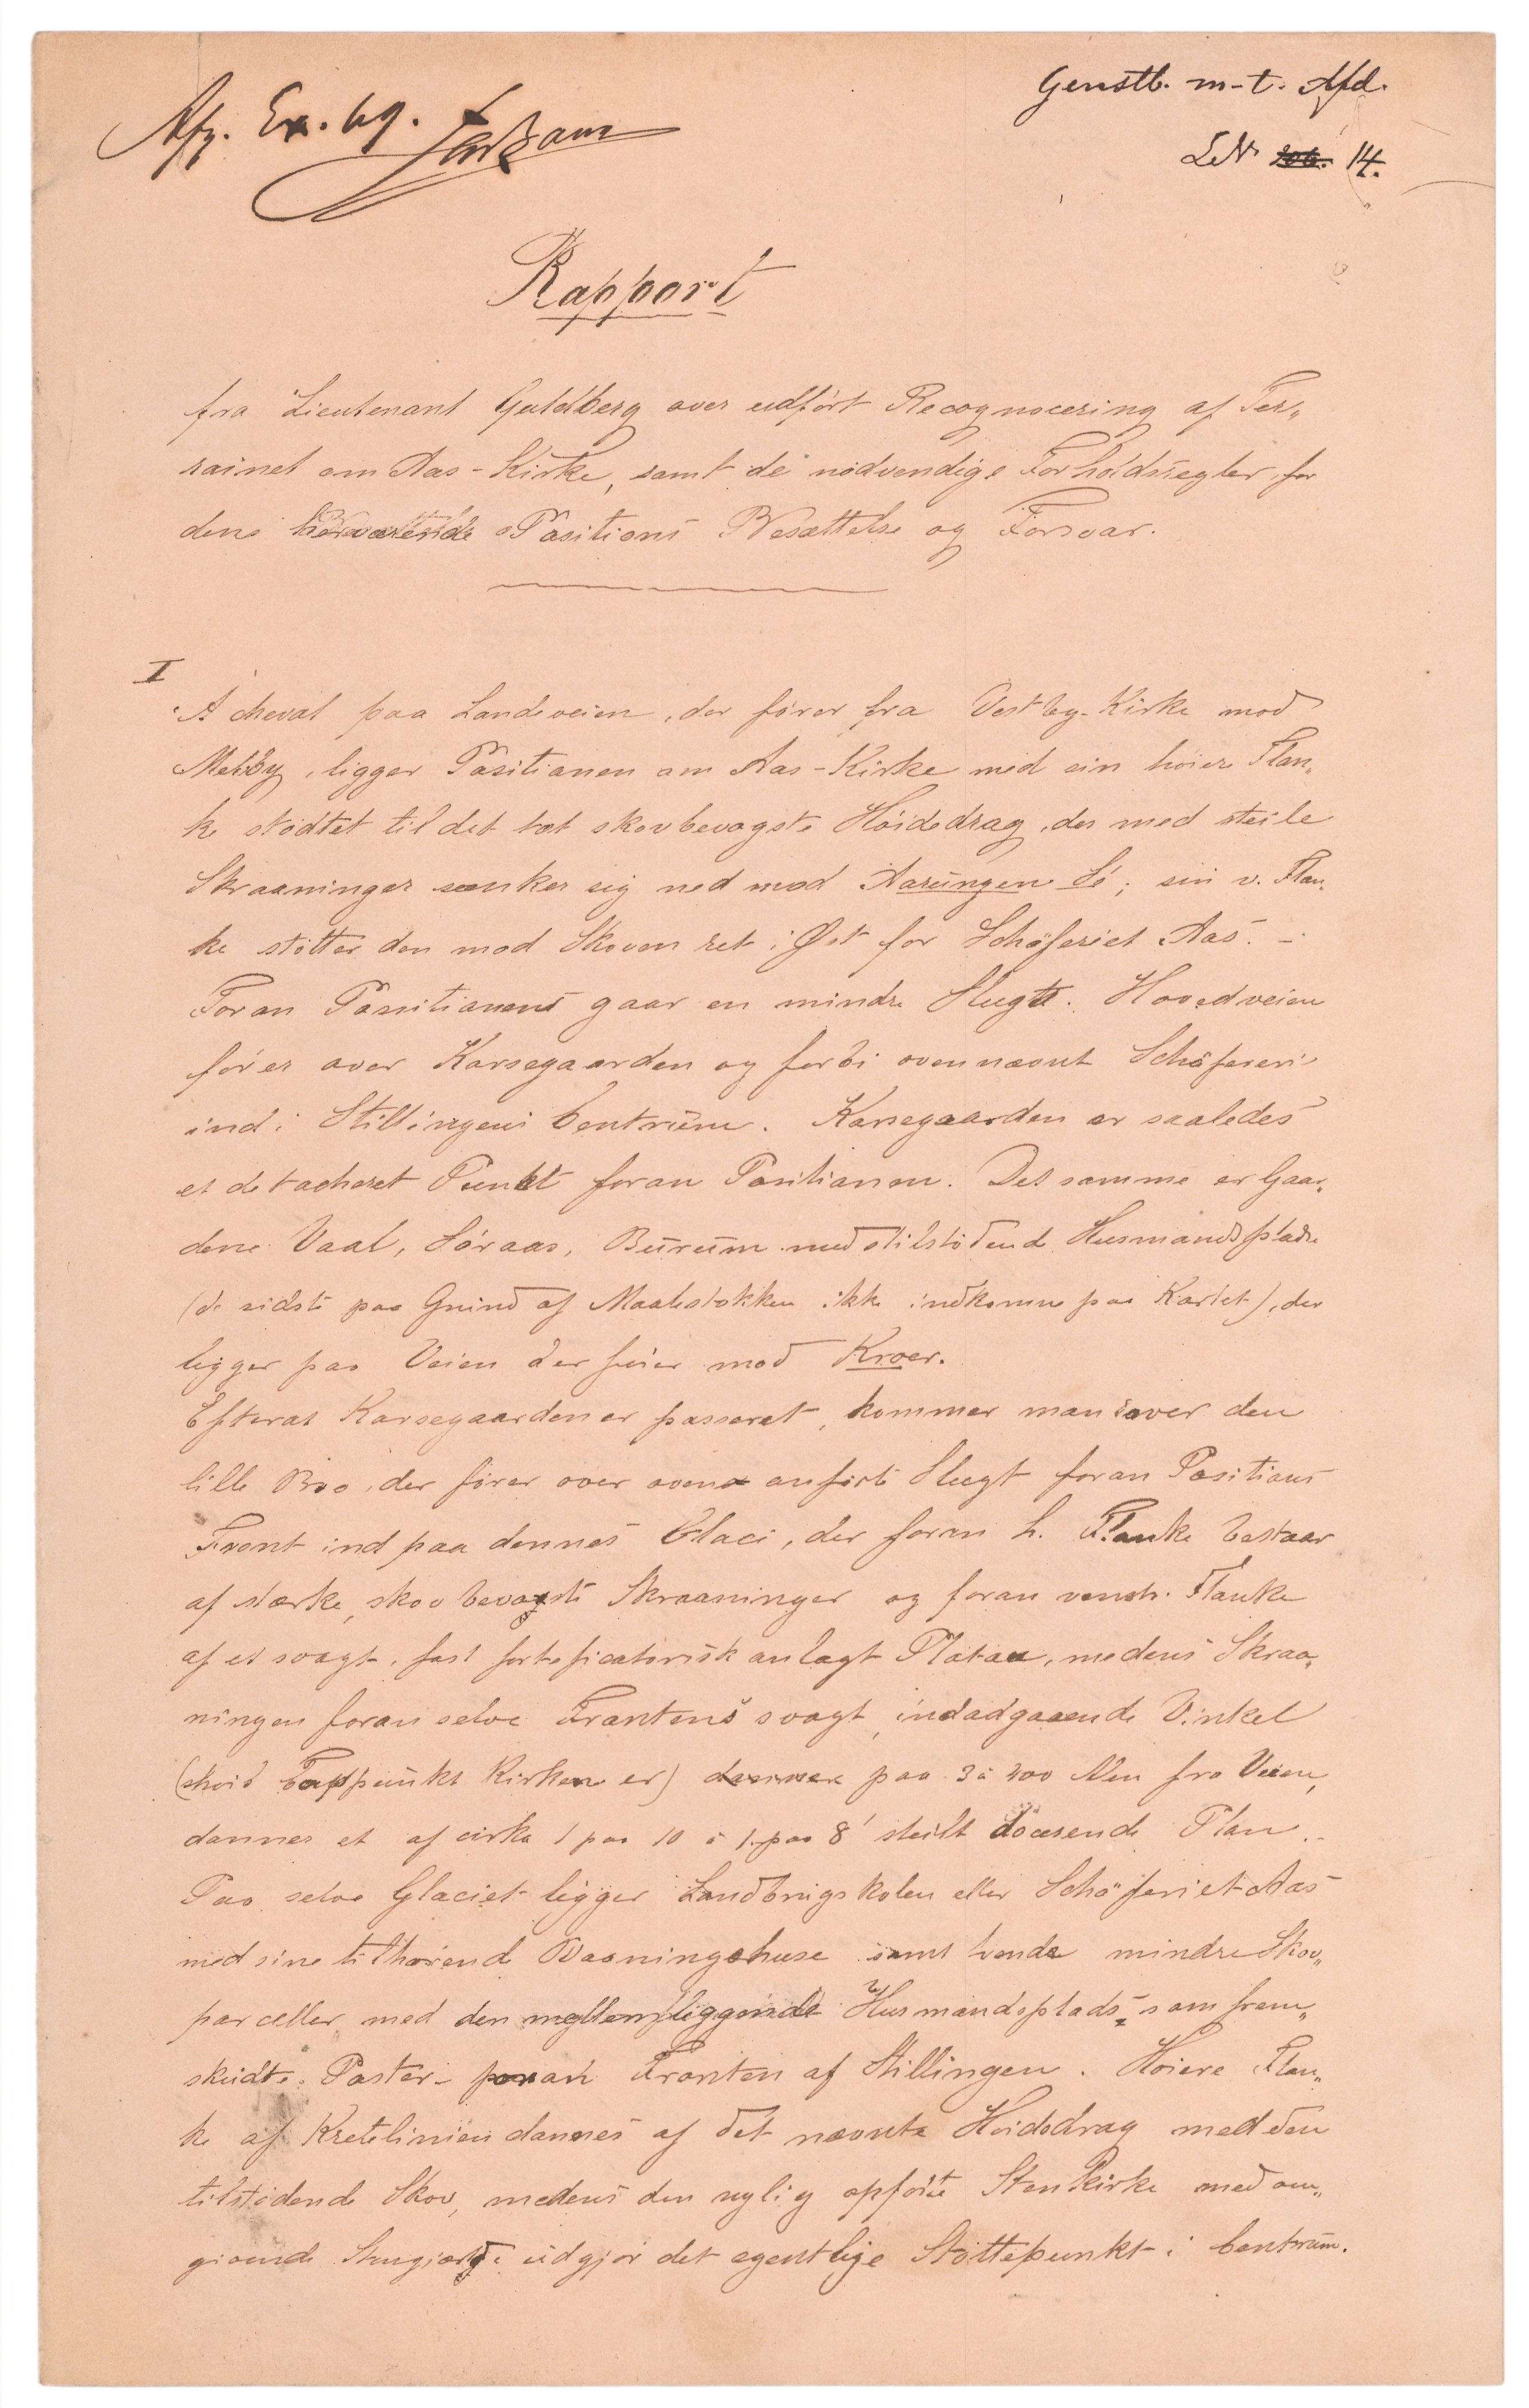 Afg. Ex. bg.
Genstb. m-t. Afd.
LN 206. 14.
Rapport
fra Lieutenant Guldberg over udført Recognocering af Ter„
rainet om Aas-Kirke, samt de nödvendige Forholdsregler for
dens Positions Besættelse og Forsvar.
I
A cheval paa Landeveien, der fører fra Vestby-Kirke mod
Melby, ligger Positionen om Aas-Kirke med sin höire Flan„
ke stödtet til det tæt skovbevogste Höidedrag, der med steile
Skraaninger sænker sig ned mod Aarungen Sö; sin v. Flan„
ke stötter den mod Skoven ret i Øst for Schäferiet Aas. –
Foran Positionens gaar en mindre Slugt. Hovedveien
förer over Korsegaarden og forbi ovennævnt Schäferi
ind i Stillingens Centrum. Korsegaarden er saaledes
et detacheret Punkt foran Positionen. Det samme er Gaar„
dene Vaal, Söraas, Burum med tilstödende Husmandsplade
(de sidste paa Grund af Maalestokken ikke indkomne paa Kartet), der
ligger paa Veien der förer mod Kroer.
Efterat Korsegaarden er passeret, kommer man over den
lille Bro, der förer over oven anförte Slugt foran Positions
Front ind paa dennes Glaci, der foran h. Flanke bestaar
af stærke, skovbevogste Skraaninger og foran venstr. Flanke
af et svagt, fast fortificatorisk anlagt Plateau, medens Skraa„
ningen foran selve Frontens svagt indadgaaende Vinkel
(hvis Toppunkt Kirken er) paa 3 à 400 Alen fra Veien,
dannes et af cirka 1 paa 10 à 1 paa 8' steilt docerende Plan.
Paa selve Glaciet ligger Landbrugskolen eller Schäferiet Aas
med sine tilhörende Vaaningshuse samt tvende mindre Skov„
parceller med den mellemliggende Husmandsplads som frem„
skudte Poster foran Fronten af Stillingen. Höiere Flan„
ke af Kretelinien dannes af det nævnte Höidedrag med den
tilstödende Skov, medens den nylig opförte Stenkirke med om„
givende Stengjærde udgjör det egentlige Stöttepunkt i Centrum.